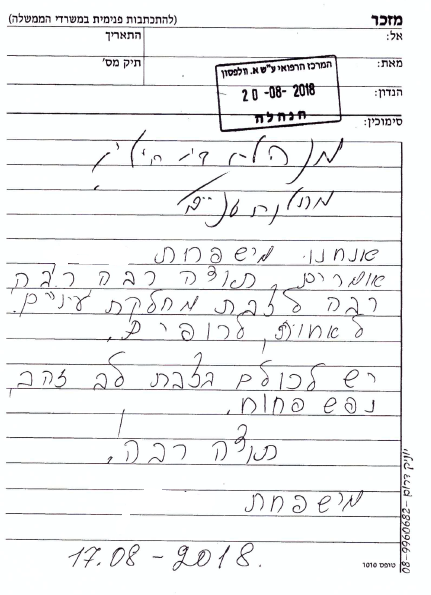 מזכר (להתכתבות פנימית במשרדי הממשלה)
אל: התאריך
מאת: תיק מס'
הנדון:
סימוכין:
המרכז הרפואי ע"ש א. וולפסון
20-08-2018
הנהלה
אנחנו משפחת
אומרים תודה רבה רבה
רבה לצבת מחלקת עיניים.
לאחות, לרופים.
יש לכולם בצבת לב זהב,
נפש פחוח.
תודה רבה.
משפחת
17.08-2018.
יוניק דרום 08-9960682
טופס 1010